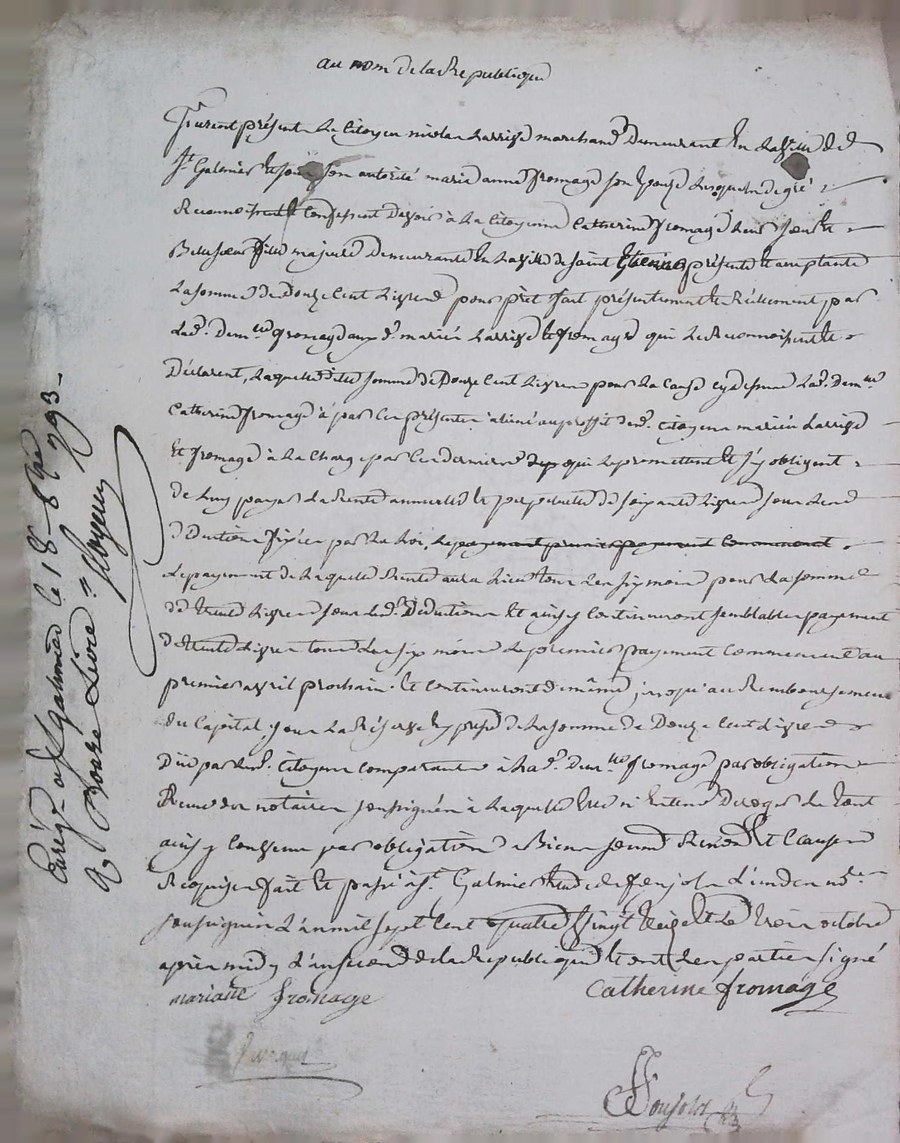 au nom de la Republique
Furent présent le Citoyen nicolas marchand demeurant en la ville de
St Galmier et sous son autorité marie anne fromage son Epouse lesquels de gré
Reconnoissent et Confessent devoir à la Citoyenne Catherine fromage leur soeur et
Bellesoeur fille majeure demeurante en la ville de saint Etienne présente et acceptante
la somme de Douze Cent Livres pour prêt fait présentement et Réelement par
lad. demlle fromage aux d. mariés et fromage qui le Reconnoissent et
Déclarent, laquelle ditte somme de Douze Cent Livres pour la Cause cy dessus lad. demlle
Catherine fromage à par Ces présentes aliéné au proffit desd. Citoyens mariés
Et fromage à la Charge par Ces derniers qui le promettent et s'y obligent
de luy payer la Rente annuelle et perpetuelle de soixante Livres sous les
déductions fixées par la Loi, le payement premier payement Commencera
le payement de laquelle Rente aura lieu tous les six mois pour la somme
de trente Livres sous lad. Déduction Et ainsy Continueront semblables payement
de trente Livres tous les six mois le premier payement Commencera au
premier avril prochain. Et Continueront de même jusqu'au Remboursement
du Capital, sous la Réserve Expresse de la somme de Douze Cent Livres
Düe par lesd. Citoyens comparants à lad. demlle fromage par obligation
Reçue des notaires soussignés à laquelle Elle n'Entend Deroger de tout
ainsy Convenu par obligation de Biens soumis Renon. Et Clauses
Requises fait Et passé à St. Galmier Etude de fonjols L'un des nres
soussignés L'an mil sept Cent quatre vingt treize Et le trois octobre
après midy L'an second de la Republique Et ont les parties signé
marianne fromage Catherine fromage
Enregé. a St galmier le 18 8bre 1793
R. Douze Livre